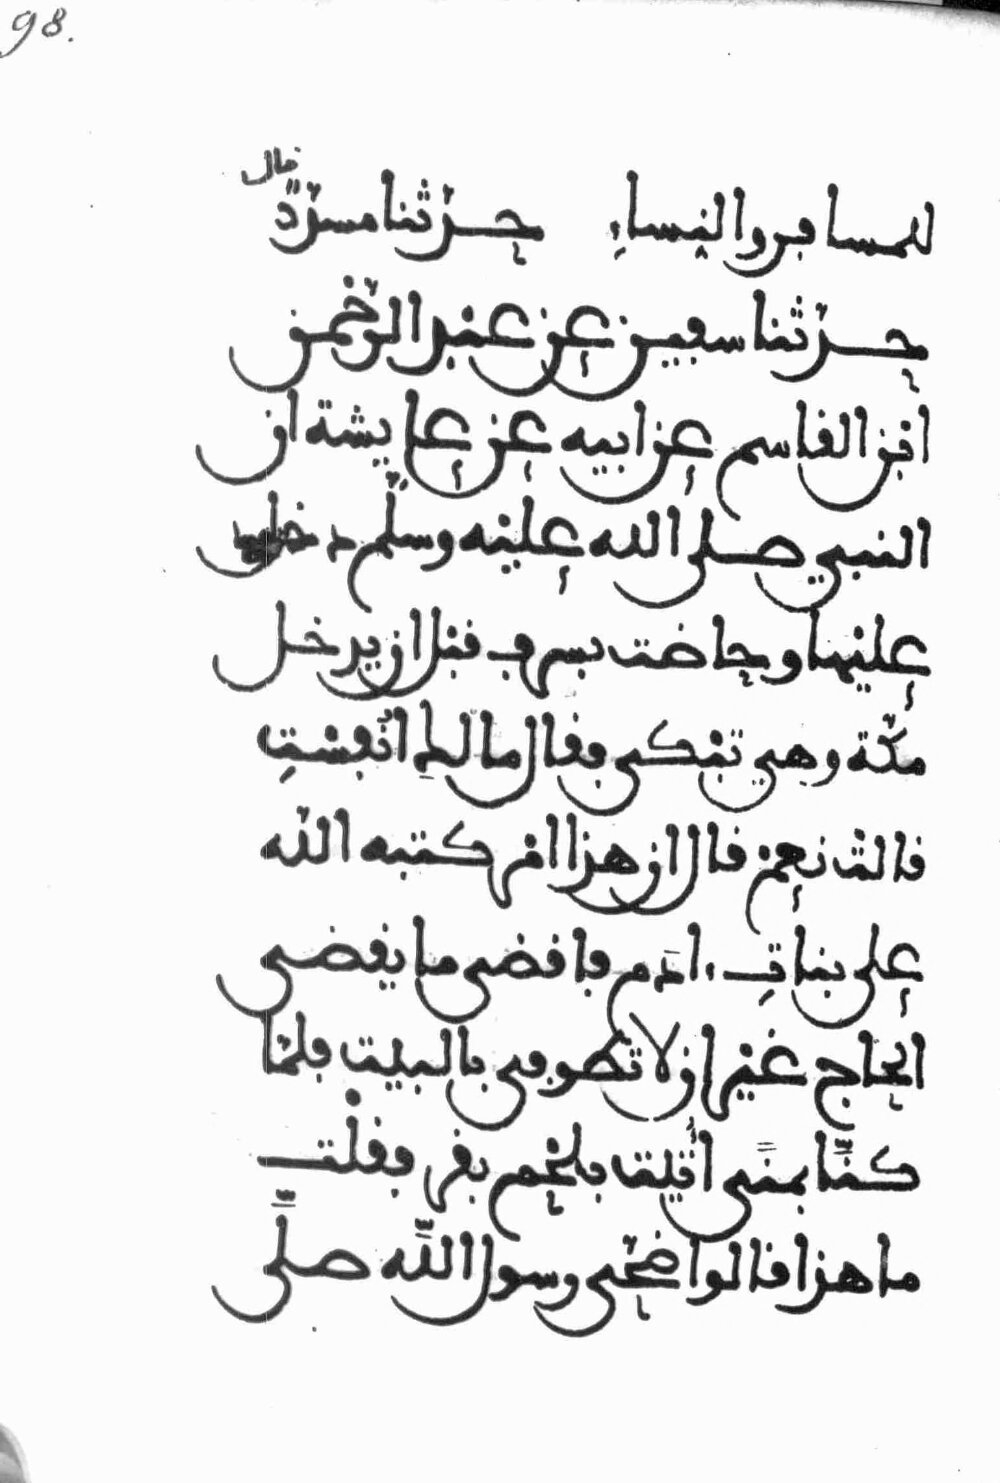 98.
للمسافر والنساء حدثنا مسدد قال
حدثنا سفين عن عبد الرحمن
ابن القاسم عن ابيه عن عايشة ان
النبي صلى الله عليه وسلم دخل
عليها وحاضت بسرف قبل ان يدخل
مكة وهي تبكي فقال ما لك انفست
قالت نعم قال ان هذا امر كتبه الله
على بنات ءادم فاقضي ما يقضي
الحاج غير ان لا تطوفي بالبيت فلما
كنا بمنى أتيت بلحم بقر فقلت
ما هذا قالوا ضحى رسول الله صلى